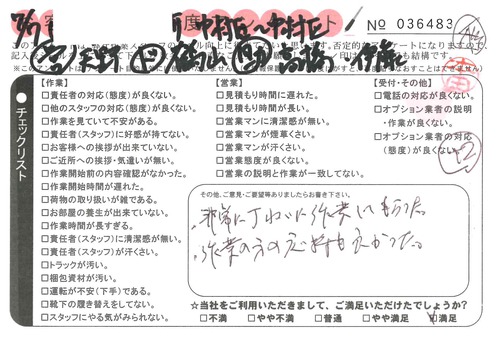 度
ート
No 036483
中村区〜中村区
チェックリスト
【作業】
□責任者の対応(態度)が良くない。
□他のスタッフの対応(態度)が良くない。
□作業を見ていて不安がある。
□責任者(スタッフ)に好感が持てない。
□お客様への挨拶が出来ていない。
□ご近所への挨拶・気遣いが無い。
□作業開始前の内容確認がなかった。
□作業開始時間が遅れた。
□荷物の取り扱いが雑である。
□お部屋の養生が出来ていない。
□作業時間が長すぎる。
□責任者(スタッフ)に清潔感が無い。
□責任者(スタッフ)が汗くさい。
□トラックが汚い。
□梱包資材が汚い。
□運転が不安(下手)である。
□靴下の履き替えをしてない。
□スタッフにやる気がみられない。
【営業】
□見積もり時間に遅れた。
□見積もり時間が長い。
□営業マンに清潔感が無い。
□営業マンが煙草くさい。
□営業マンが汗くさい。
□営業態度が良くない。
□営業の説明と作業が一致してない。
【受付・その他】
□電話の対応が良くない。
□オプション業者の説明
・作業が良くない。
□オプション業者の対応
(態度)が良くない。
その他、ご意見・ご要望等ありましたらお書き下さい。
・非常に丁ねいに作業してもらった。
・作業の方の応対も良かった。
☆当社をご利用いただきまして、ご満足いただけたでしょうか?
□不満 □やや不満 □普通 □やや満足 □満足